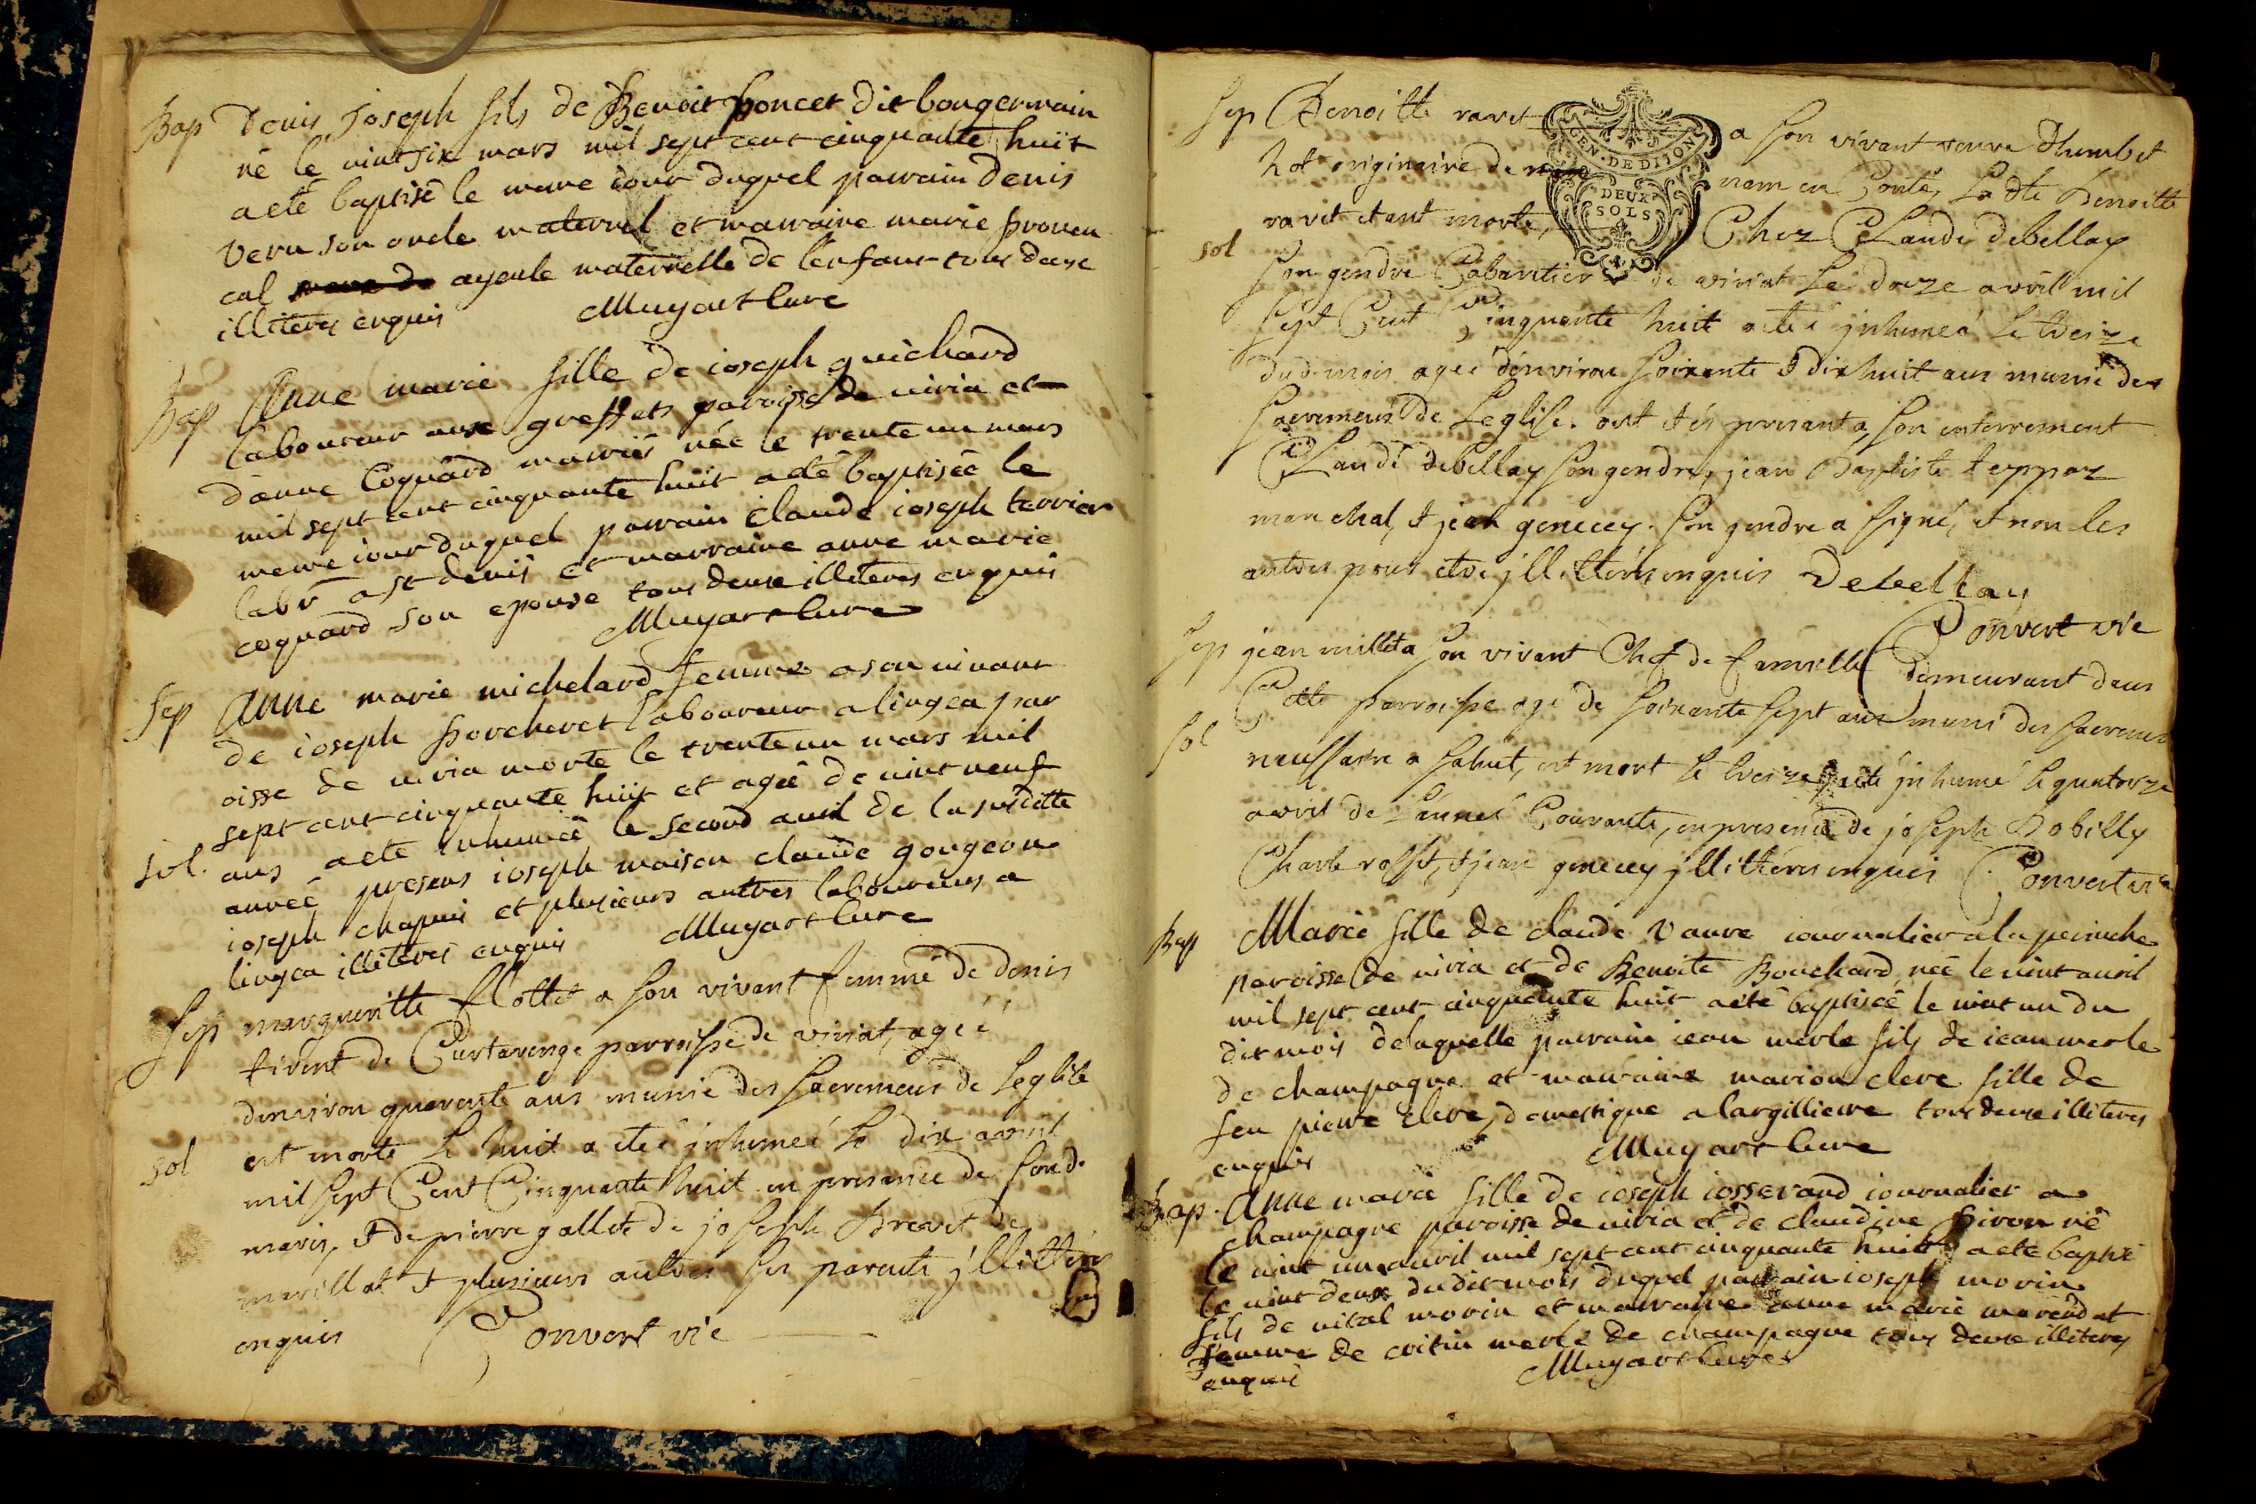 Bap Denis joseph fils de Benoit poncet dit bongermain
né le vint six mars mil sept cent cinquante huit
a eté baptisé le meme iour duquel parrain denis
veru son oncle maternel et marraine marie proven
cal ayeule maternelle de lenfant tous deux
illiteres enquis Muyart cure
Bap Anne marie fille de ioseph guichard
laboureur aux greffets paroisse de viria et
danne Coquard mariés née le trente un mars
mil sept cent cinquante huit a eté baptisée le
meme iour duquel parrain claude ioseph terrier
labr a st denis et marraine anne marie
coquard son epouse tous deux illiteres enquis
Muyart cure
Sep Anne marie michelard femme a son vivant
de ioseph porcheret laboureur a lingea par
oisse de viria morte le trente un mars mil
sept cent cinquante huit et agée de vint neuf
Sol. ans a eté inhumée le second avril de la susditte
année presens ioseph maison claude gougeon
ioseph chapuis et plusieurs autres laboureurs a
lingea illiteres enquis Muyart cure
Sep margueritte flottet a son vivant femme de denis
tirent de Curtarenge parroisse de viriat, agée
denviron quarente ans munie des sacremens de leglise
Sol est morte le huit a etée jnhumeé le dix avril
mil sept Cent Cinquante huit en presence de son d.
maris, & de pierre gallet de joseph Brevet de
marillat & plusieurs aultres ses parents jllitterés
enquis Convert vic
Sep Benoitte ravet a son vivant veuve dhumbet
hot originaire de nam en Conté, la dte Benoitte
ravet etant morte, Chez Claude debellay
Sol son gendre Cabaretier de viriat le douze avril mil
sept Cent Cinquante huit a etée jnhumeé le treize
dud. mois ageé denviron soixante & dix huit ans munie des
sacremens de leglise. ont etés present a son enterrement
Claude debellay son gendre, jean Baptiste teppaz
marechal, & jean genecey. son gendre a signé, & non les
aultres pour etre jllitterés enquis Debellay
Convert vic
Sep jean millet a son vivant Chef de famille demeurant dans
Cette parroisse agé de soixante sept ans muni des sacremens
Sol necessaire a salut, est mort le treize a eté jnhumé le quatorze
avril de lannée Courante, en presence de joseph Robilly
Charle rosset, & jean genecey jllitterés enquis Convert vic
Bap Marie fille de claude vaure iournalier a la peruche
paroisse de viria et de Benoite Bouchard, née le vint avril
mil sept cent cinquante huit a eté baptisée le vint un du
dit mois de laquelle parrain iean merle fils de iean merle
de champagne et marraine marion clere fille de
feu pierre clere, domestique a largilliere tous deux illiteres
enquis Muyart cure
Bap. Anne marie fille de ioseph iosserand iournalier a
champagne paroisse de viria et de claudine piron né
le vint un avril mil sept cent cinquante huit a eté baptisé
le vint deux dudit mois duquel parrain ioseph morin
fils de vital morin et marraine anne marie marendat
femme de critin merle de champagne tous deux illiteres
enquis Muyart cure
GEN·DE DIJON
DEUX
SOLS